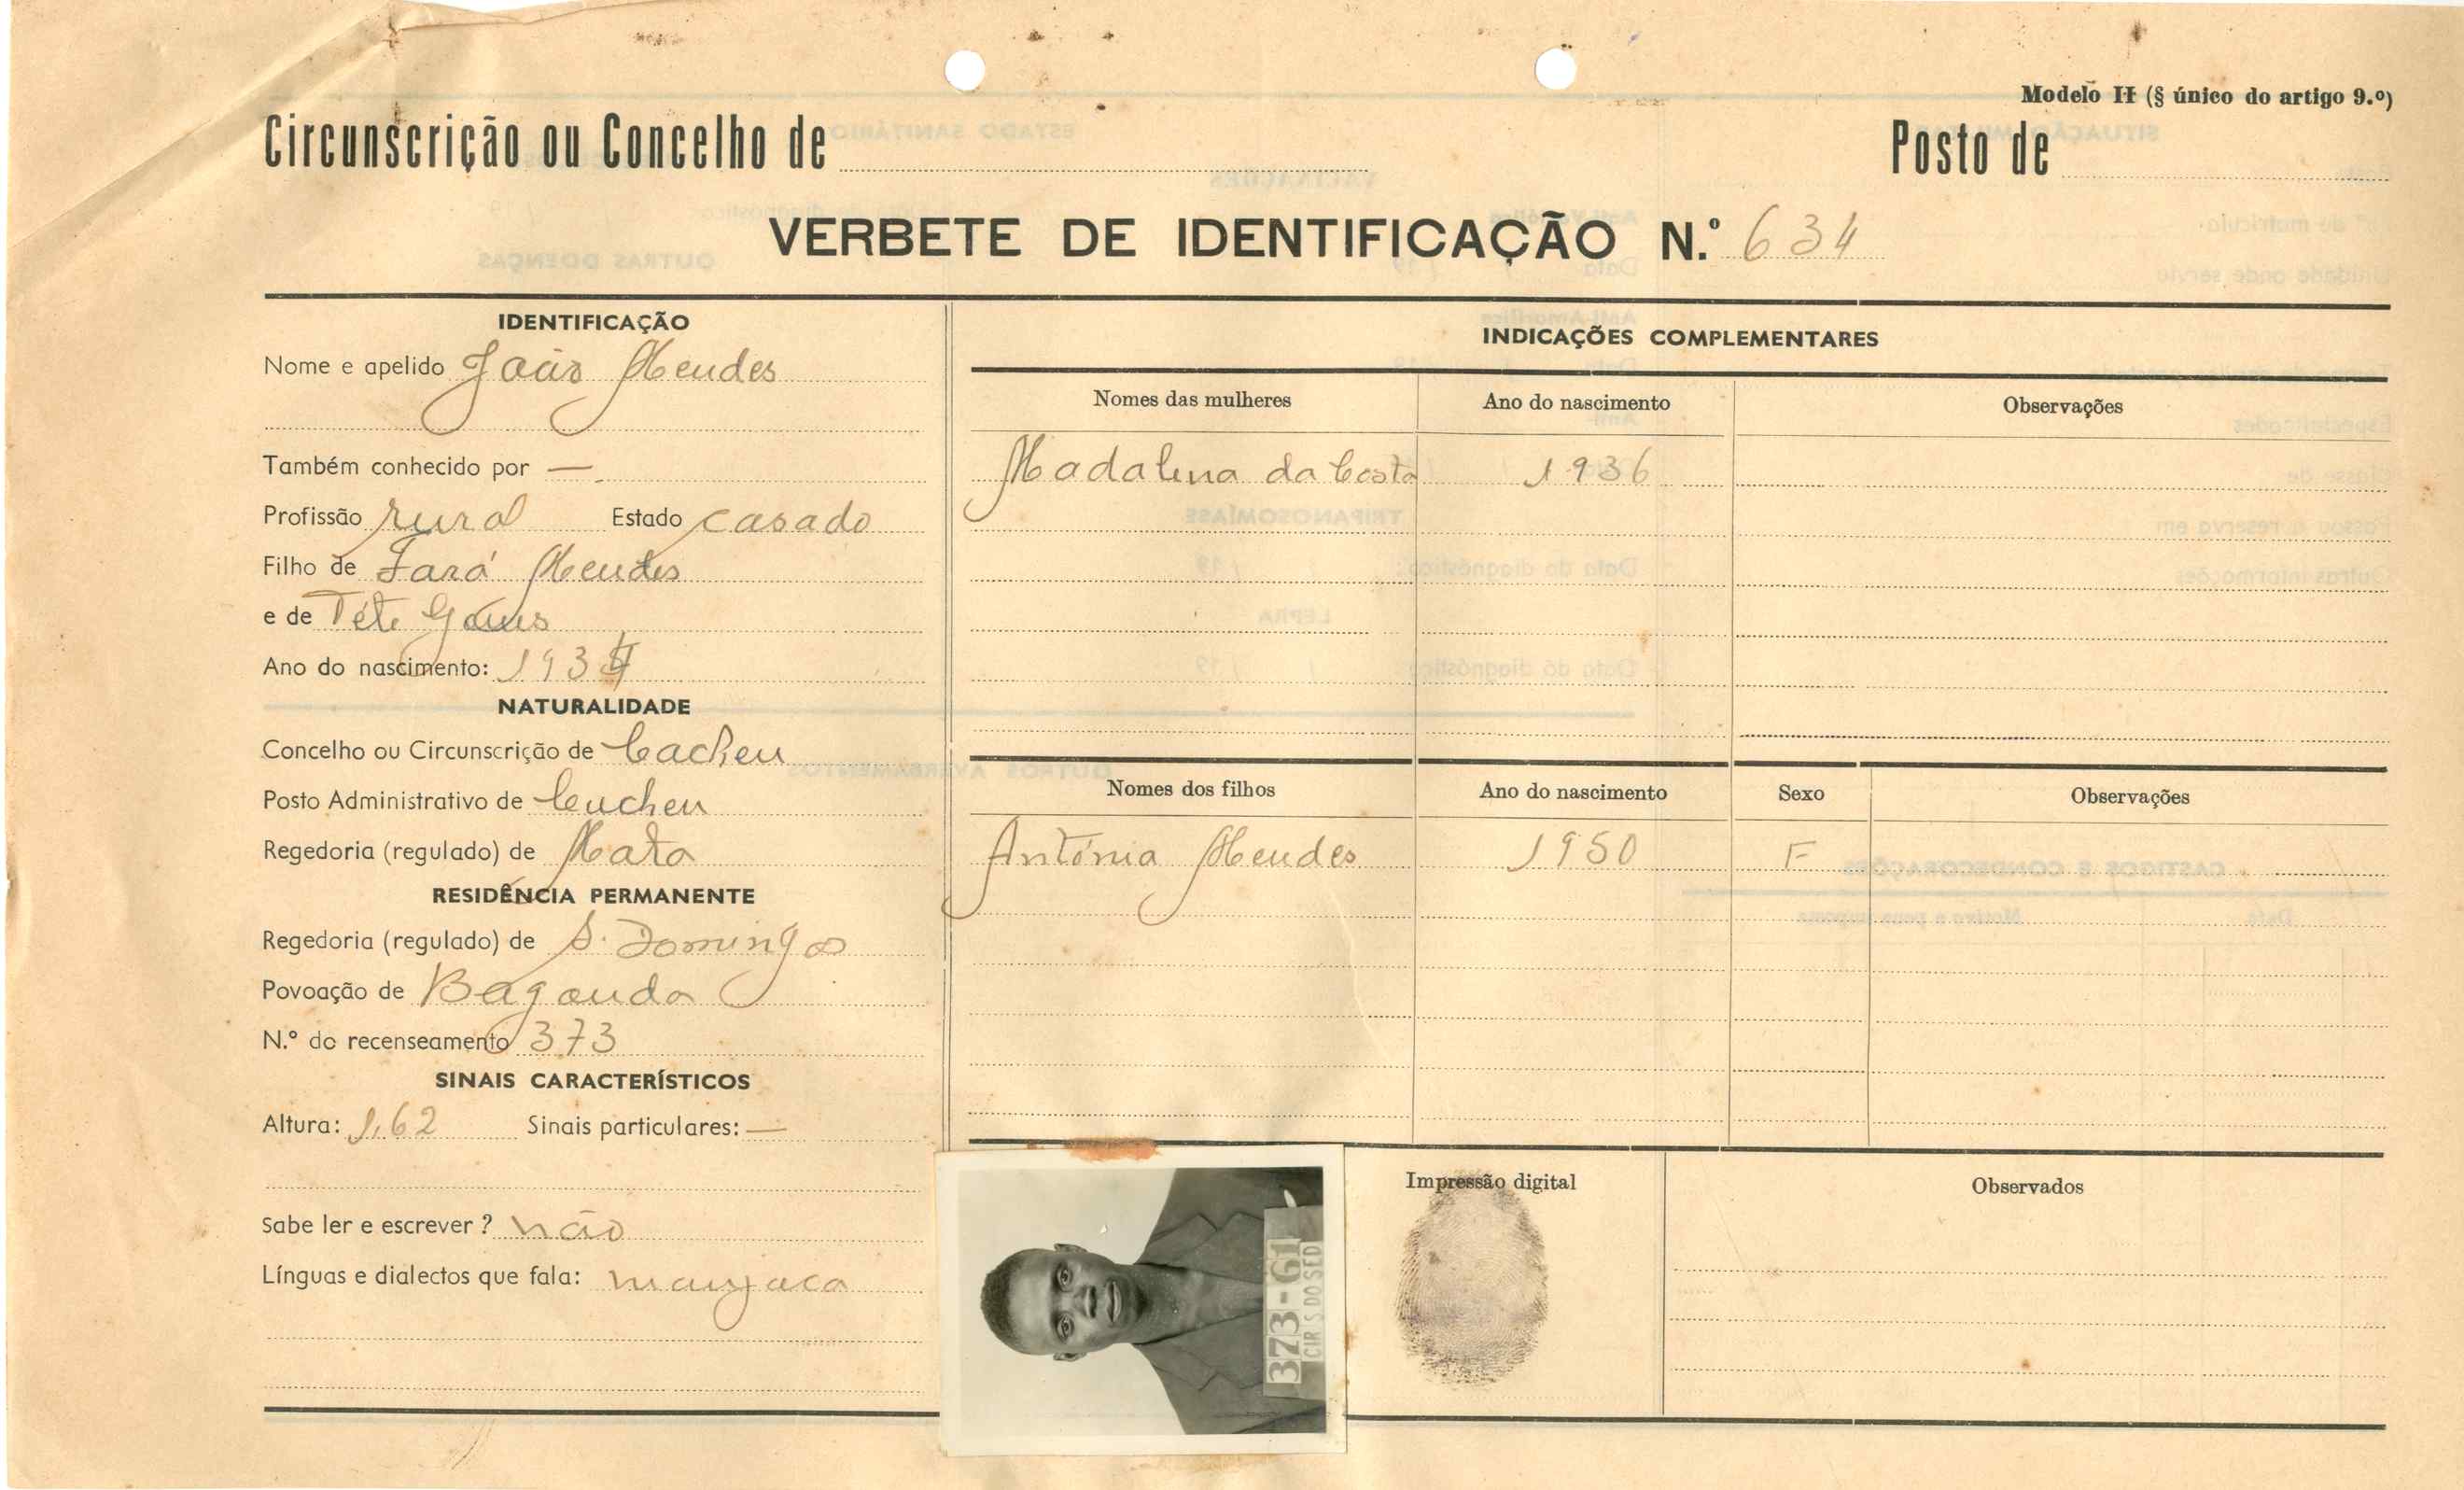 Modelo II (§ único do artigo 9.º)
Circunscrição ou Concelho de
Posto de
VERBETE DE IDENTIFICAÇÃO N.º 634
IDENTIFICAÇÃO
Nome e apelido João Mendes
Também conhecido por —
Profissão rural Estado casado
Filho de Fará Mendes
e de Tété Gomes
Ano do nascimento:
NATURALIDADE
Concelho ou Circunscrição de Cacheu
Posto Administrativo de Cacheu
Regedoria (regulado) de Mata
RESIDÊNCIA PERMANENTE
Regedoria (regulado) de S. Domingos
Povoação de Baganda
N.º do recenseamento 373
SINAIS CARACTERÍSTICOS
Altura: 1,62 Sinais particulares: —
Sabe ler e escrever? não
Línguas e dialectos que fala: manjaca
INDICAÇÕES COMPLEMENTARES
Nomes das mulheres Ano do nascimento Observações
Madalena da Costa 1936
Nomes dos filhos Ano do nascimento Sexo Observações
Antónia Mendes 1950 F
373-61
CIR S DO SED
Impressão digital
Observados